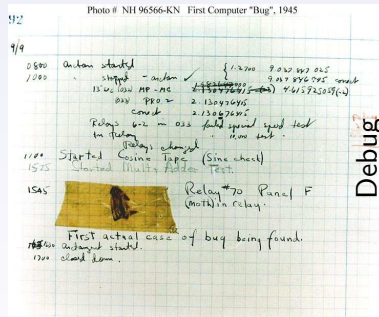 Photo # NH 96566-KN First Computer "Bug", 1945
92
9/9
0800 Antan started
1000 " stopped - antan ✓ { 1.2700 9.037 847 025
9.037 846 995 correct
13"UC (032) MP-MC 4.615925059(-2)
(033) PRO 2 2.130476415
correct 2.130676415
Relays 6-2 in 033 failed special speed test
in Relay 10.000 test.
Relays changed
1100 Started Cosine Tape (Sine check)
1525 Started Multi Adder Test.
1545 Relay #70 Panel F
(moth) in relay.
First actual case of bug being found.
antangent started.
1700 closed down.
Debug